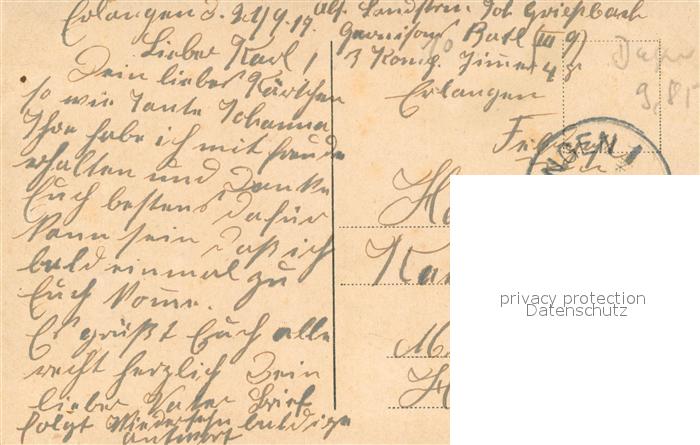 Erlangen d. 21/9.17.
Lieber Karl!
Dein liebes Kärtchen
so wie Tante Johanna
Ihre habe ich mit Freude
erhalten und Danke
Euch bestens dafür
kann sein daß ich
bald einmal zu
Euch komme.
Es grüßt Euch alle
recht herzlich Dein
lieber Vater Brief
folgt Wiedersehn baldige
Antwort
Abs. Landstrm. Joh. Grießbach
Garnison Batl. (III 9)
3 Komp. Zimmer 48
Erlangen
NGEN 1
privacy protection
Datenschutz